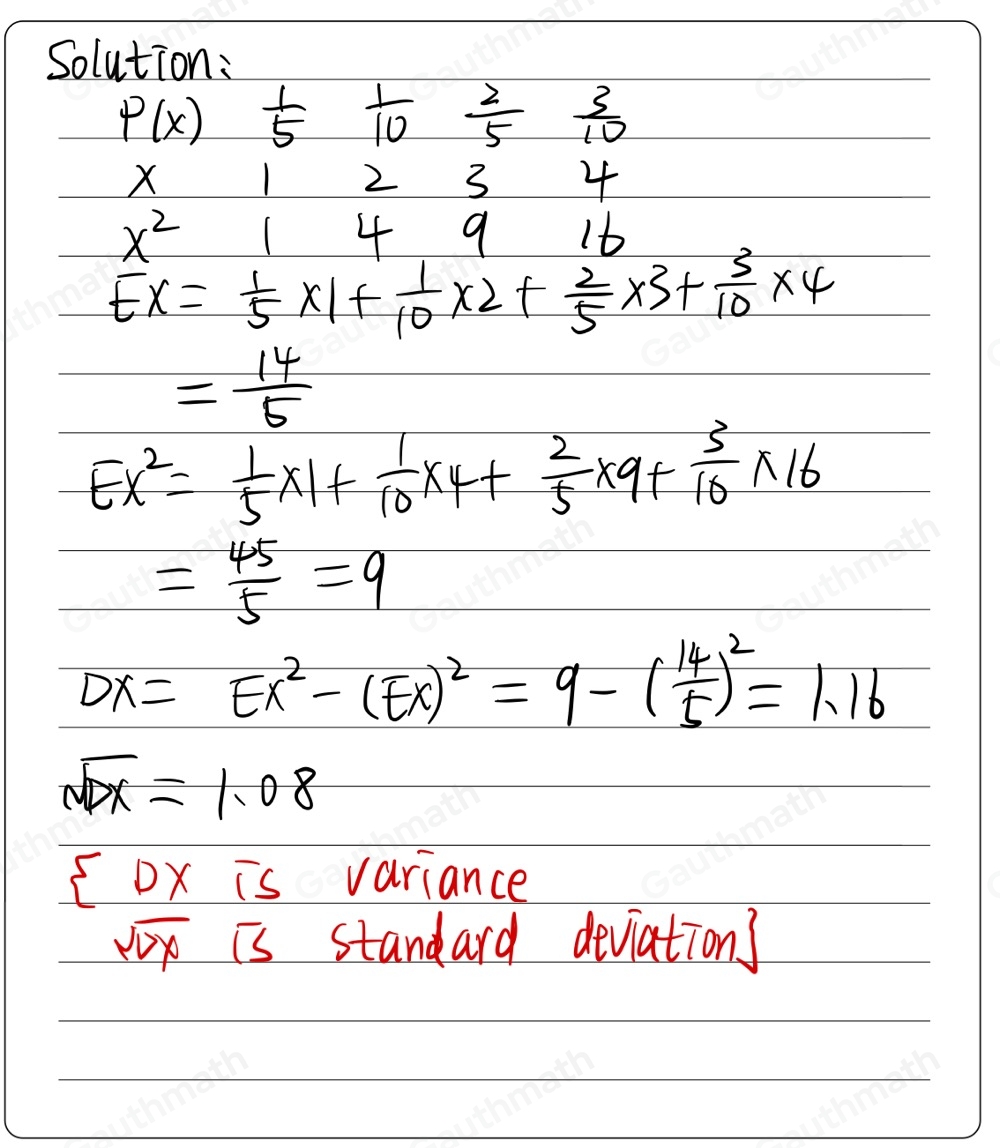 Solution:
P(x) 1/5 1/10 2/5 3/10
x 1 2 3 4
x² 1 4 9 16
EX = 1/5 ×1 + 1/10 ×2 + 2/5 ×3 + 3/10 ×4
= 14/5
EX² = 1/5 ×1 + 1/10 ×4 + 2/5 ×9 + 3/10 ×16
= 45/5 = 9
DX = EX² - (EX)² = 9 - (14/5)² = 1.16
√DX = 1.08
{ DX is variance
√DX is standard deviation}
Gauthmath